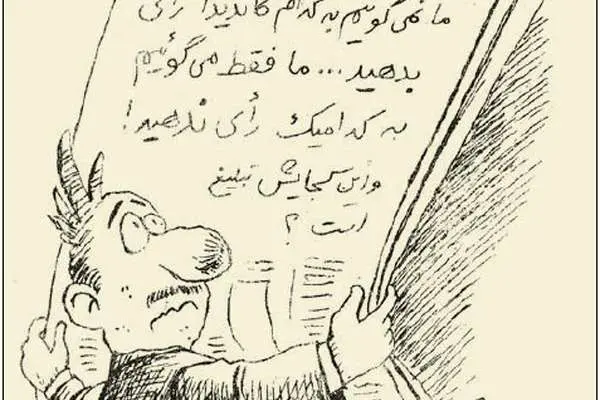 ما نمی گوییم به کدام کاندیدا رأی
بدهید... ما فقط می گوئیم
به کدامیک رأی ندهید!
و این کجایش تبلیغ
است؟